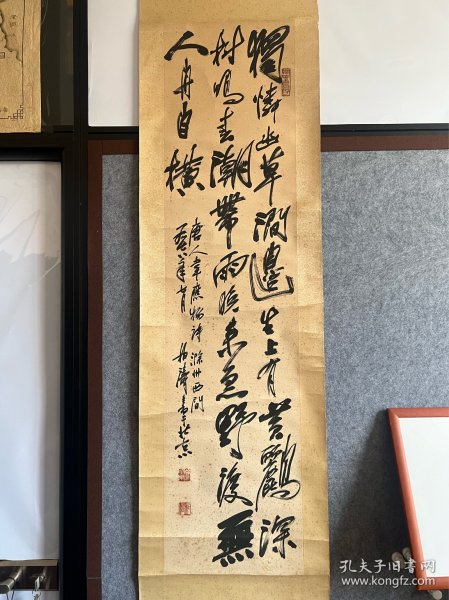 獨憐幽草澗邊生上有黃鸝深
樹鳴春潮帶雨晚来急野渡無
人舟自横
唐人韋應物詩滁州西澗
八年 月 濤書北京
孔夫子旧书网
www.kongfz.com